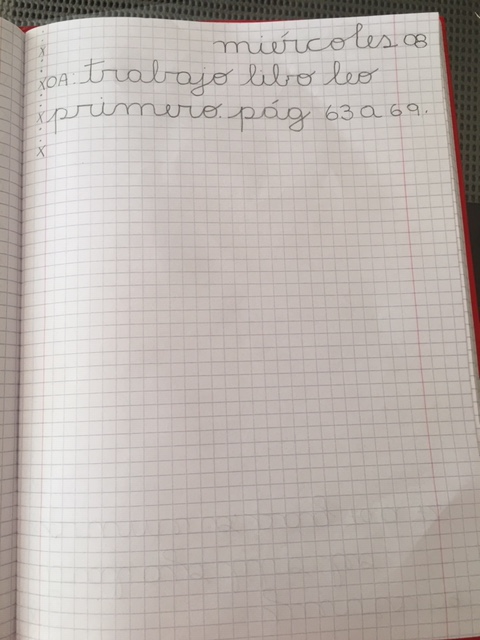 x miércoles 08
x OA. trabajo libo leo
x primero. pág 63 a 69.
x